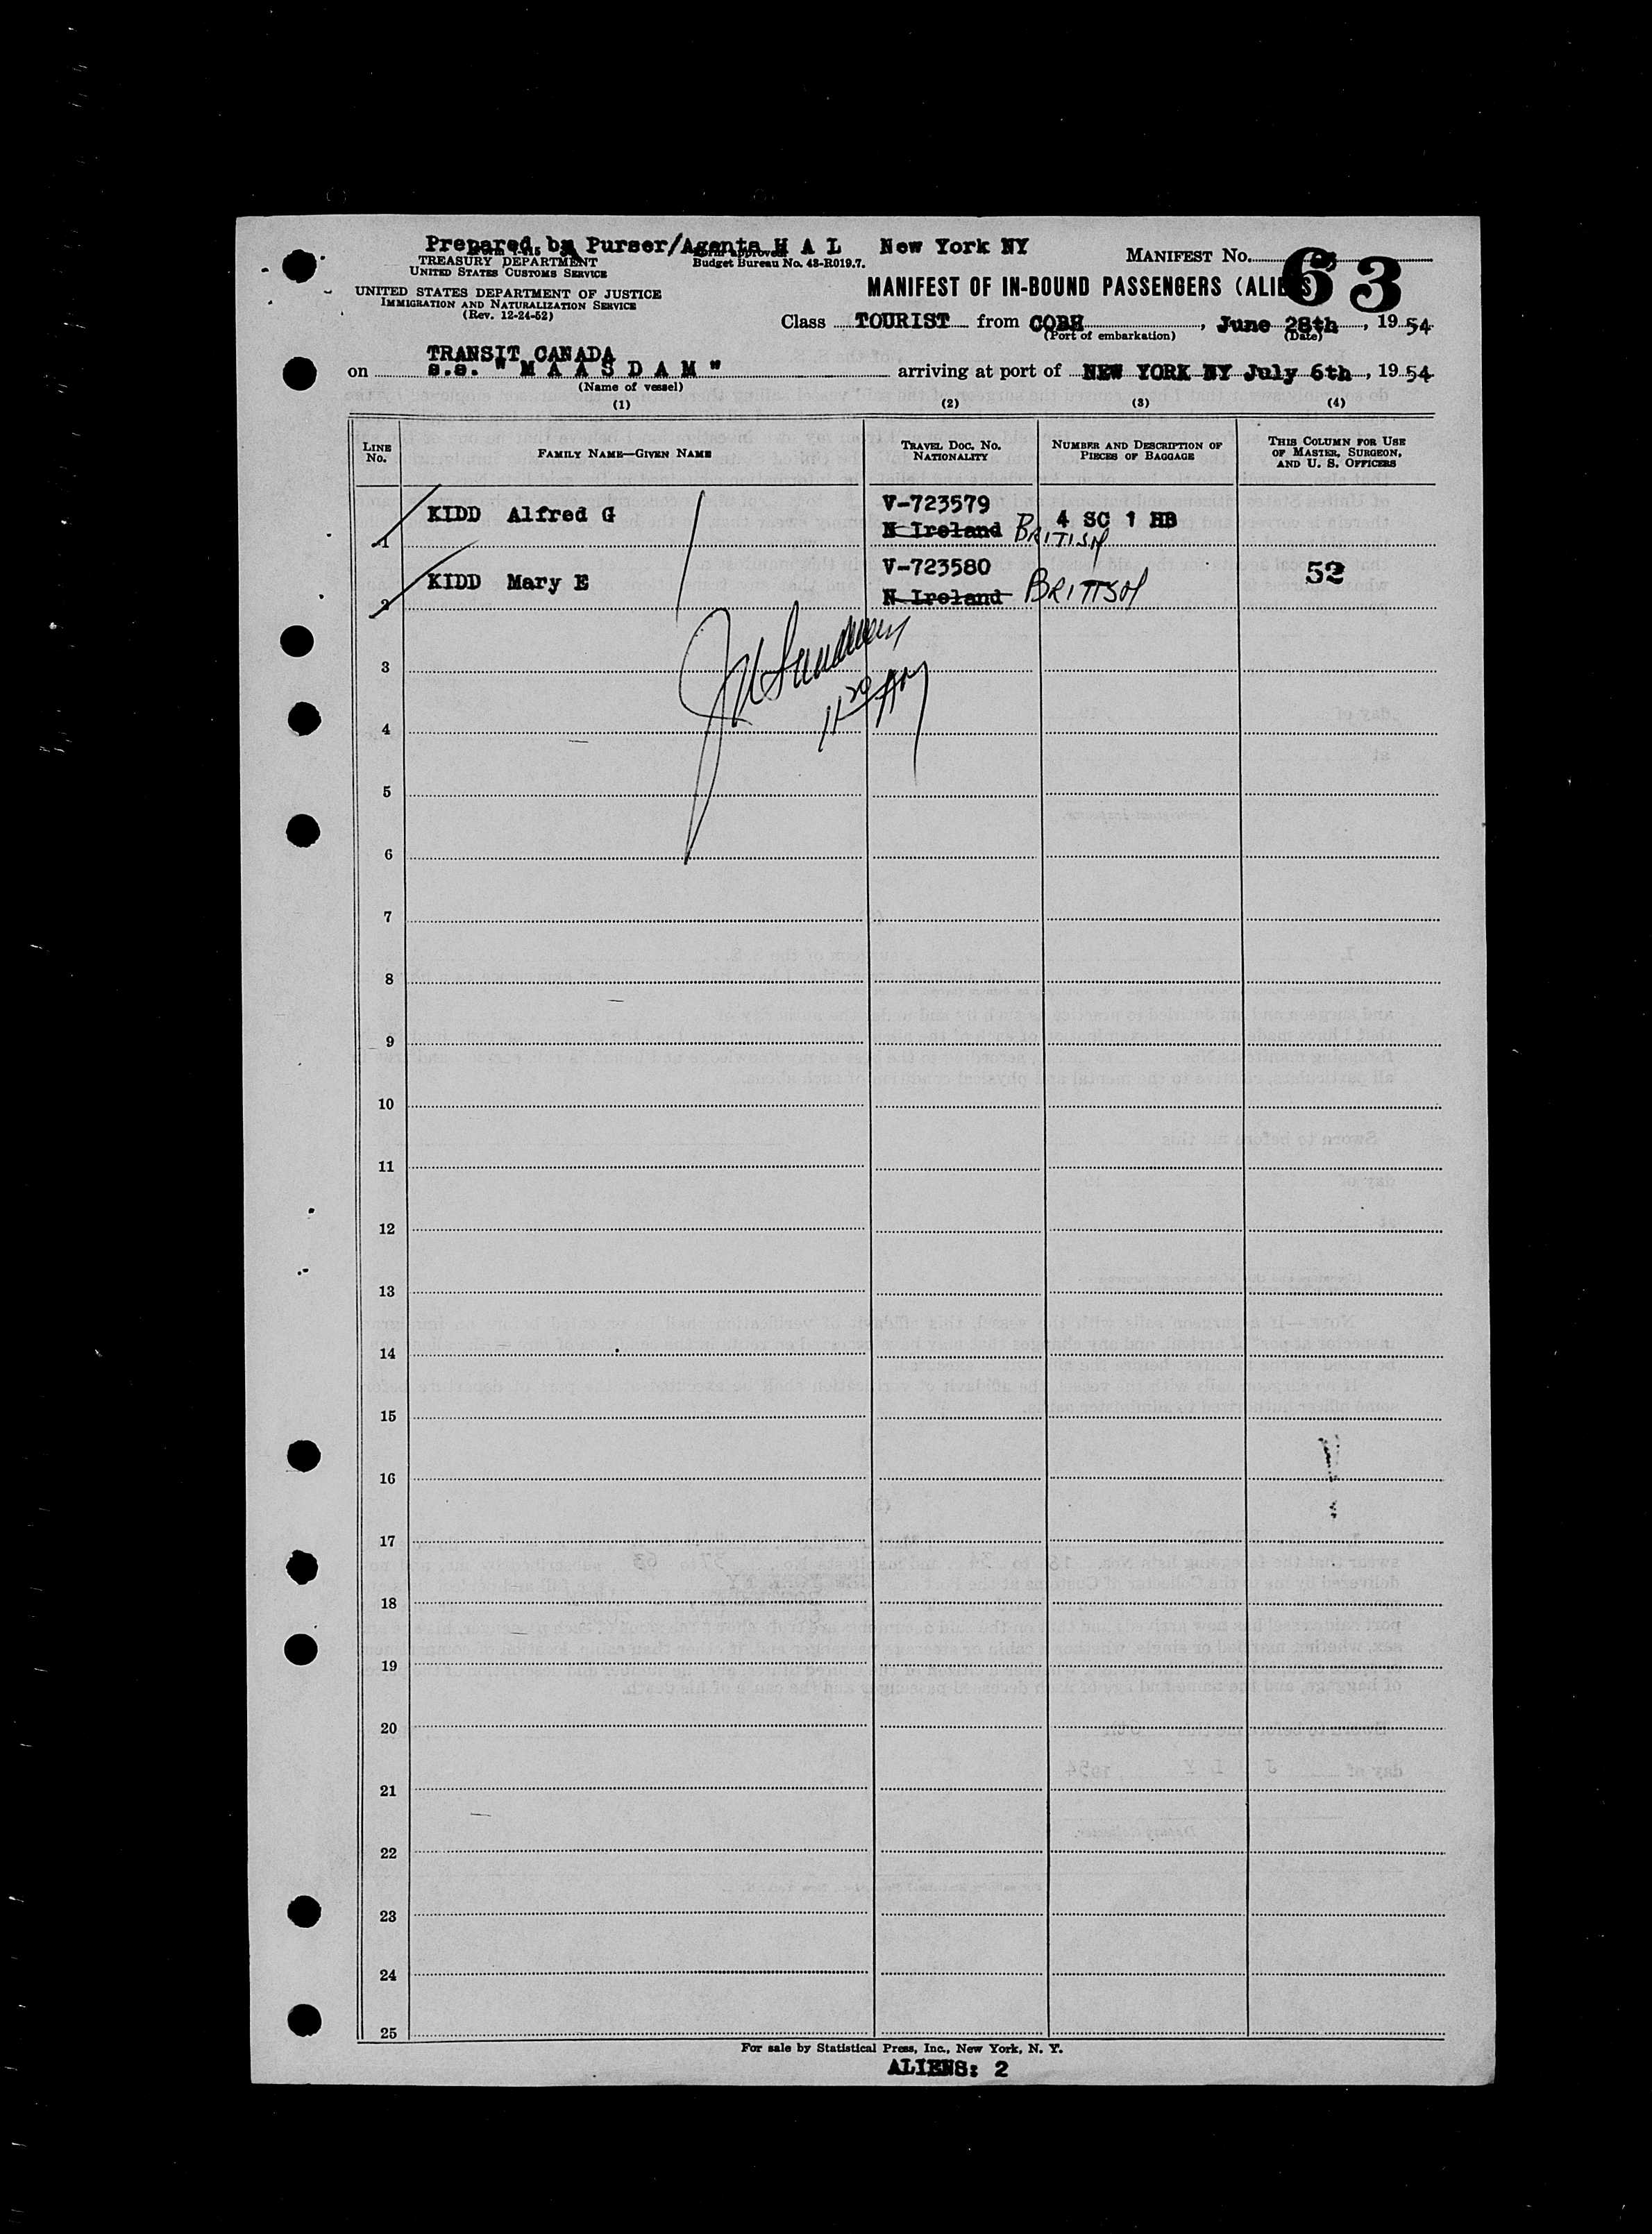 Prepared by Purser/Agents H A L New York NY
TREASURY DEPARTMENT
UNITED STATES CUSTOMS SERVICE
Form approved
Budget Bureau No. 43-R019.7.
MANIFEST No. 63
UNITED STATES DEPARTMENT OF JUSTICE
IMMIGRATION AND NATURALIZATION SERVICE
(Rev. 12-24-52)
MANIFEST OF IN-BOUND PASSENGERS (ALIENS)
Class TOURIST from COBH, June 28th, 19 54
(Port of embarkation) (Date)
TRANSIT CANADA
on s.s. "M A A S D A M" arriving at port of NEW YORK NY July 6th, 19 54
(Name of vessel)
(1) (2) (3) (4)
LINE No. FAMILY NAME—GIVEN NAME TRAVEL DOC. NO. NATIONALITY NUMBER AND DESCRIPTION OF PIECES OF BAGGAGE THIS COLUMN FOR USE OF MASTER, SURGEON, AND U. S. OFFICERS
1 KIDD Alfred G V-723579 4 SC 1 HB
N Ireland BRITISH
2 KIDD Mary E V-723580 52
N Ireland BRITISH
3
11 20 AM
4
5
6
7
8
9
10
11
12
13
14
15
16
17
18
19
20
21
22
23
24
25
For sale by Statistical Press, Inc., New York, N. Y.
ALIENS: 2